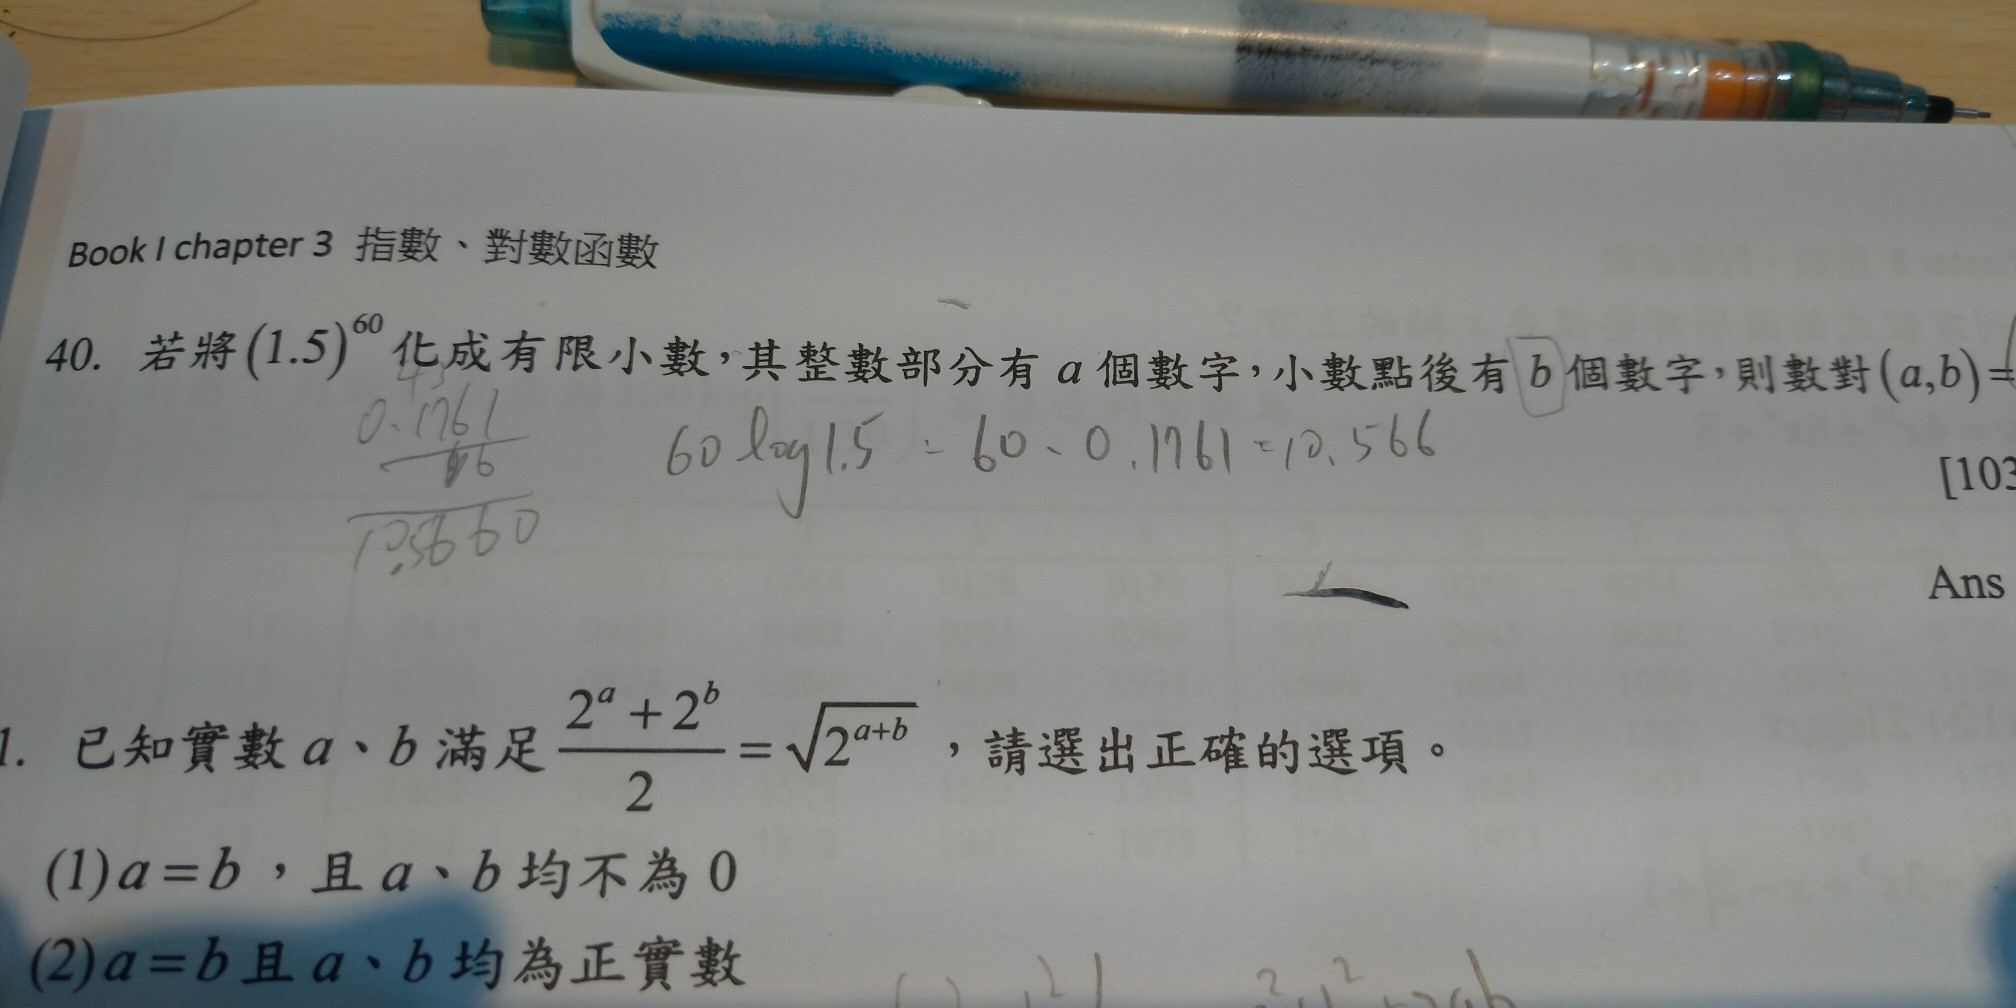 Book I chapter 3 指數、對數函數
40. 若將(1.5)^60 化成有限小數,其整數部分有 a 個數字,小數點後有 b 個數字,則數對(a,b)=
0.1761
60 log1.5 = 60、0.1761=10.566
[103
10.5660
Ans
1. 已知實數 a、b 滿足 (2^a + 2^b)/2 = √(2^(a+b)) ,請選出正確的選項。
(1) a = b ,且 a、b 均不為 0
(2) a = b 且 a、b 均為正實數